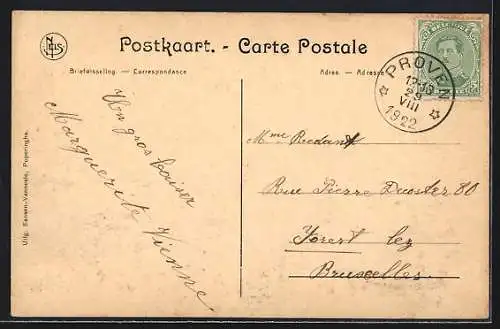 NELS
Postkaart. - Carte Postale
Briefwisseling — Correspondance
Adres — Adresse
PROVEN
12-13
29
VIII
1922
Un gros baiser
Marguerite Vienne
Mme
Rue Pierre 80
Forest lez
Bruxelles
Uitg. Sansen-Vanneste, Poperinghe.